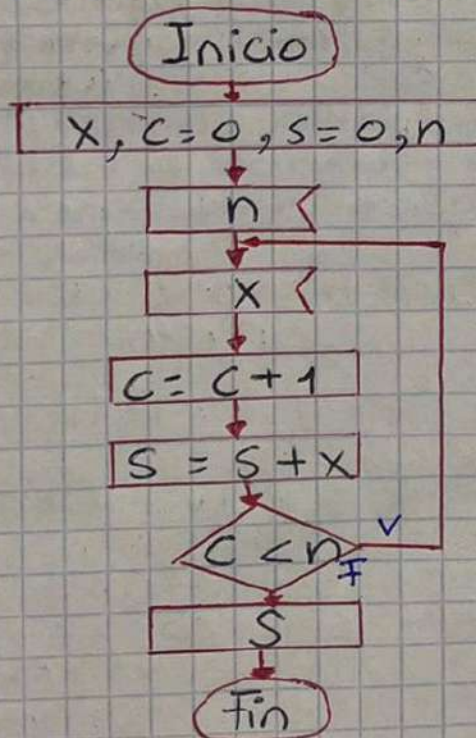 Inicio
x, c=0, s=0, n
n
x
c = c + 1
s = s + x
c < n
V
F
S
Fin